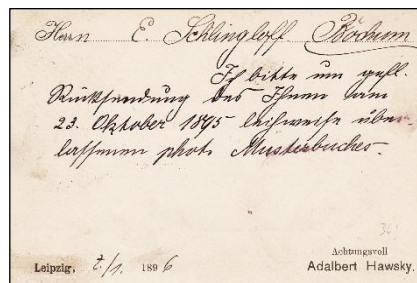 Herrn E. Schlingloff Bochum
Ich bitte um gefl.
Rücksendung des Ihnen am
23. Oktober 1895 leihweise über-
lassenen phot. Musterbuches.
Leipzig, 2/1. 1896
Achtungsvoll
Adalbert Hawsky.